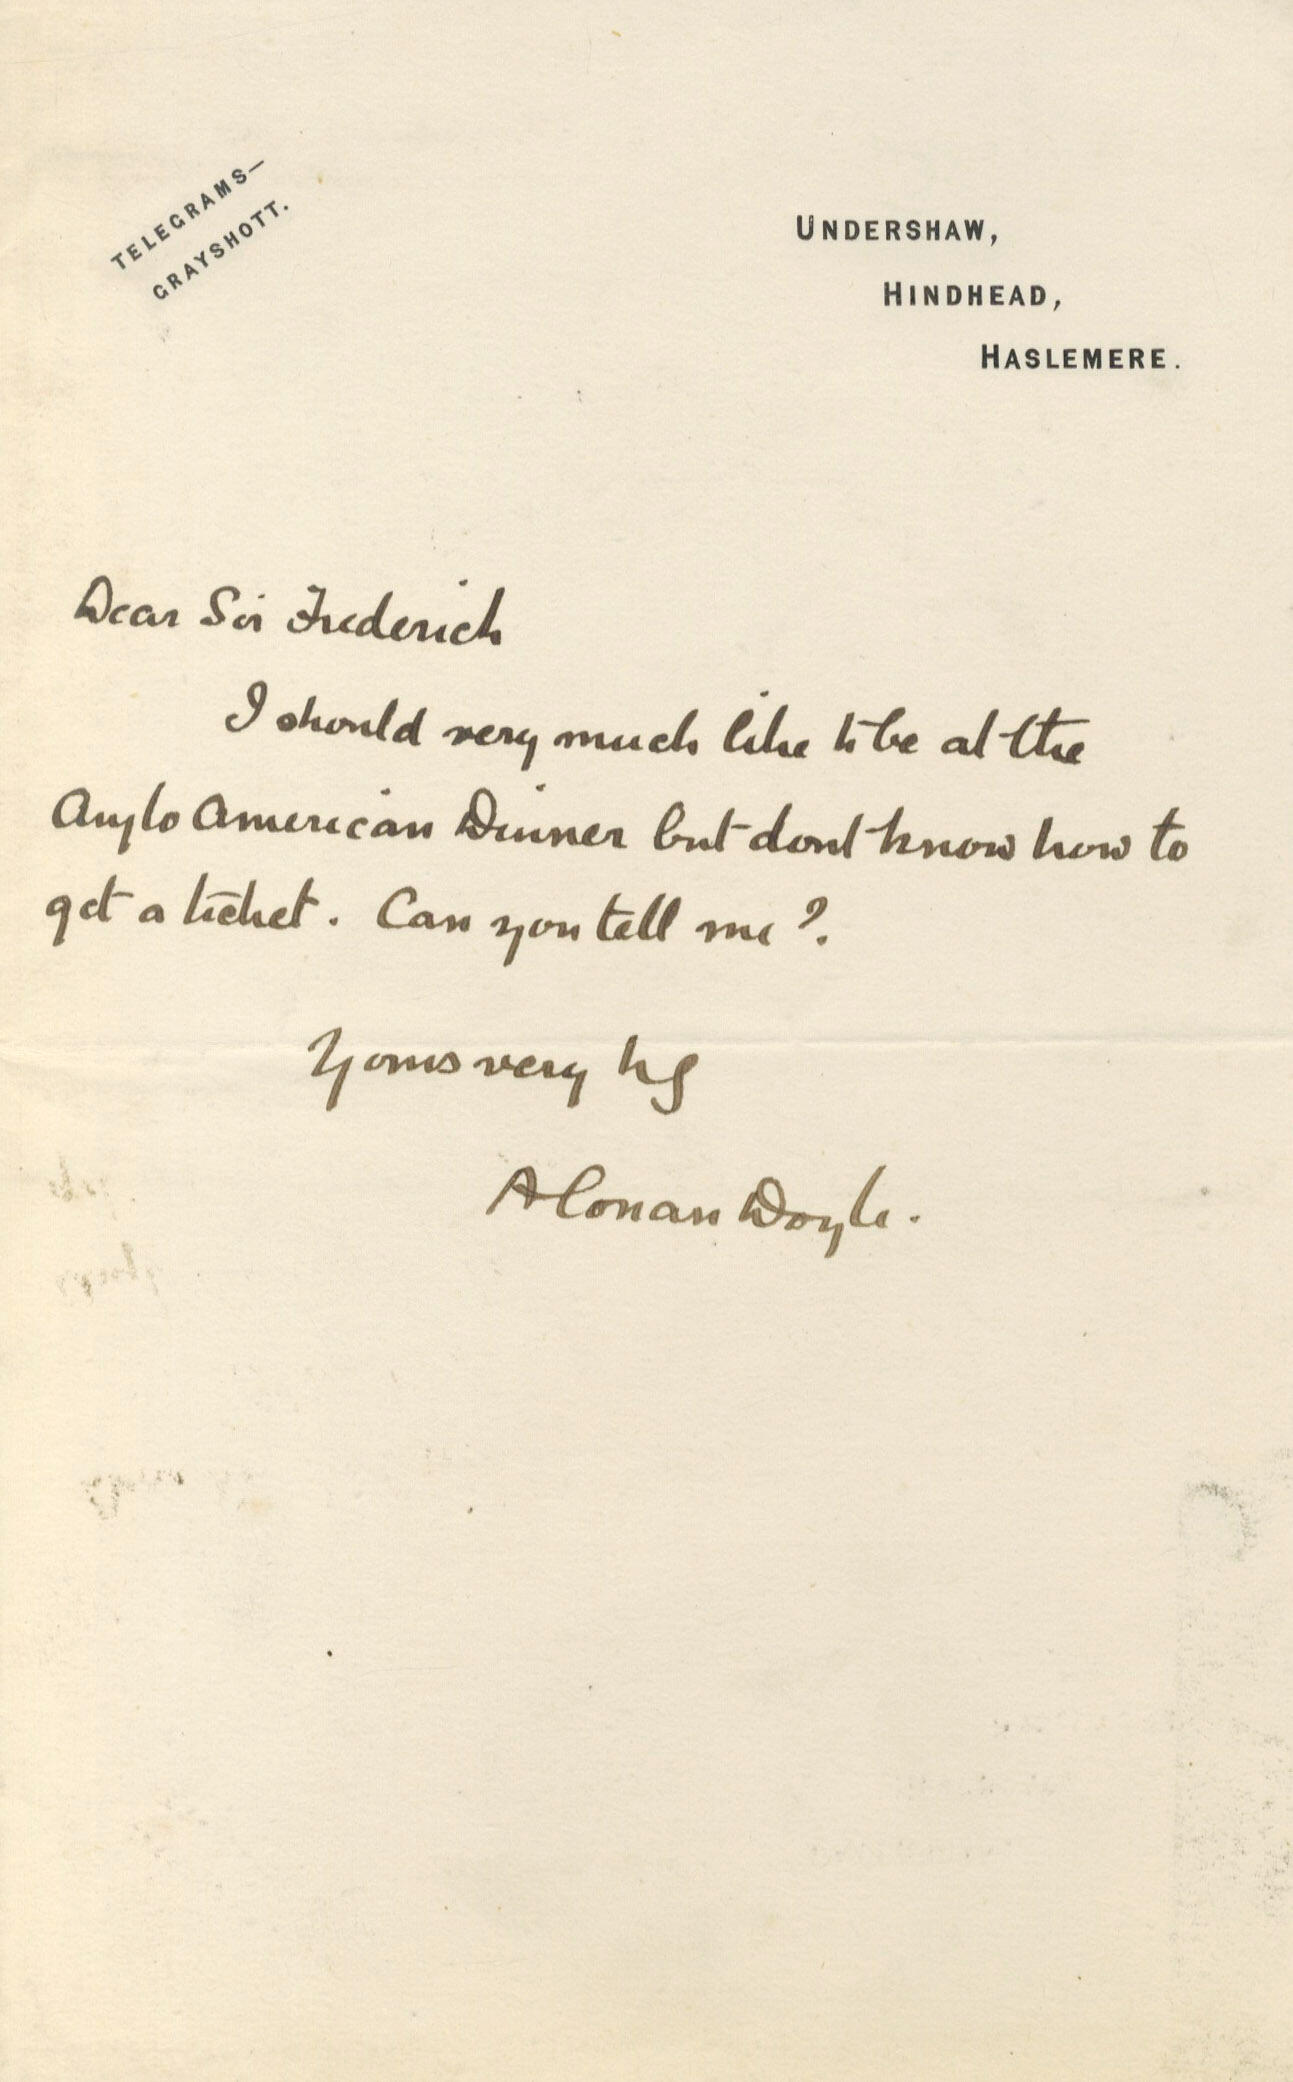 TELEGRAMS—
GRAYSHOTT.
UNDERSHAW,
HINDHEAD,
HASLEMERE.
Dear Sir Frederick
I should very much like to be at the
Anglo American Dinner but dont know how to
get a ticket. Can you tell me?.
Yours very
A Conan Doyle.